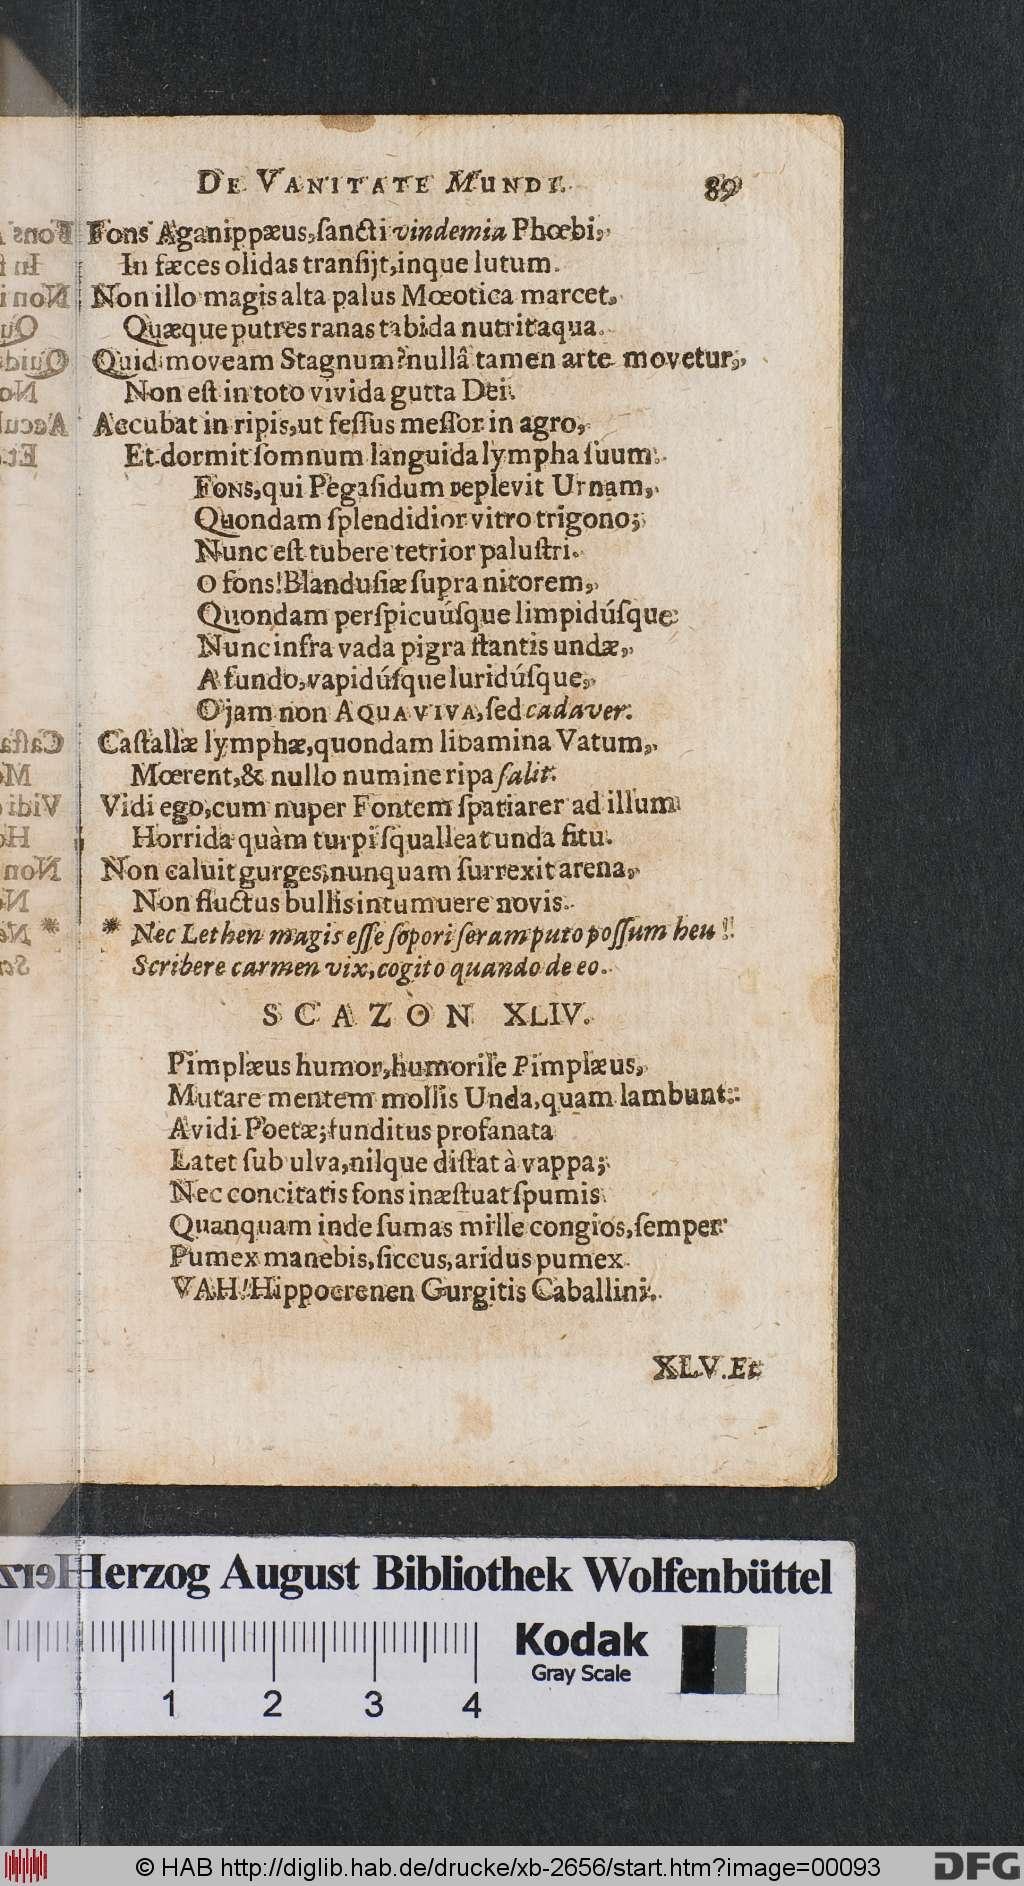 DE VANITATE MUNDI. 89
Fons Aganippæus, ſancti vindemia Phœbi,
In fæces olidas tranſijt, inque lutum.
Non illo magis alta palus Mœotica marcet,
Quæque putres ranas tabida nutrit aqua.
Quid moveam Stagnum? nullâ tamen arte movetur,
Non eſt in toto vivida gutta Dei.
Accubat in ripis, ut feſſus meſſor in agro,
Et dormit ſomnum languida lympha ſuum.
FONS, qui Pegaſidum replevit Urnam,
Quondam ſplendidior vitro trigono;
Nunc eſt tubere tetrior paluſtri.
O fons! Blanduſiæ ſupra nitorem,
Quondam perſpicuúſque limpidúſque
Nunc infra vada pigra ſtantis undæ,
A fundo, vapidúſque luridúſque,
O jam non AQUA VIVA, ſed cadaver.
Caſtallæ lymphæ, quondam libamina Vatum,
Mœrent, & nullo numine ripa ſalit.
Vidi ego, cum nuper Fontem ſpatiarer ad illum
Horrida quàm turpi ſqualleat unda ſitu.
Non caluit gurges, nunquam ſurrexit arena,
Non fluctus bullis intumuere novis.
* Nec Lethen magis eſſe ſoporiferam puto poſſum heu!
Scribere carmen vix, cogito quando de eo.
SCAZON XLIV.
Pimplæus humor, humoriſe Pimplæus,
Mutare mentem mollis Unda, quam lambunt
Avidi Poetæ; funditus profanata
Latet ſub ulva, nilque diſtat à vappa;
Nec concitatis fons inæſtuat ſpumis
Quanquam inde ſumas mille congios, ſemper
Pumex manebis, ſiccus, aridus pumex.
VAH! Hippocrenen Gurgitis Caballini.
XLV. Et
Herzog August Bibliothek Wolfenbüttel
Kodak
Gray Scale
1 2 3 4
© HAB http://diglib.hab.de/drucke/xb-2656/start.htm?image=00093
DFG